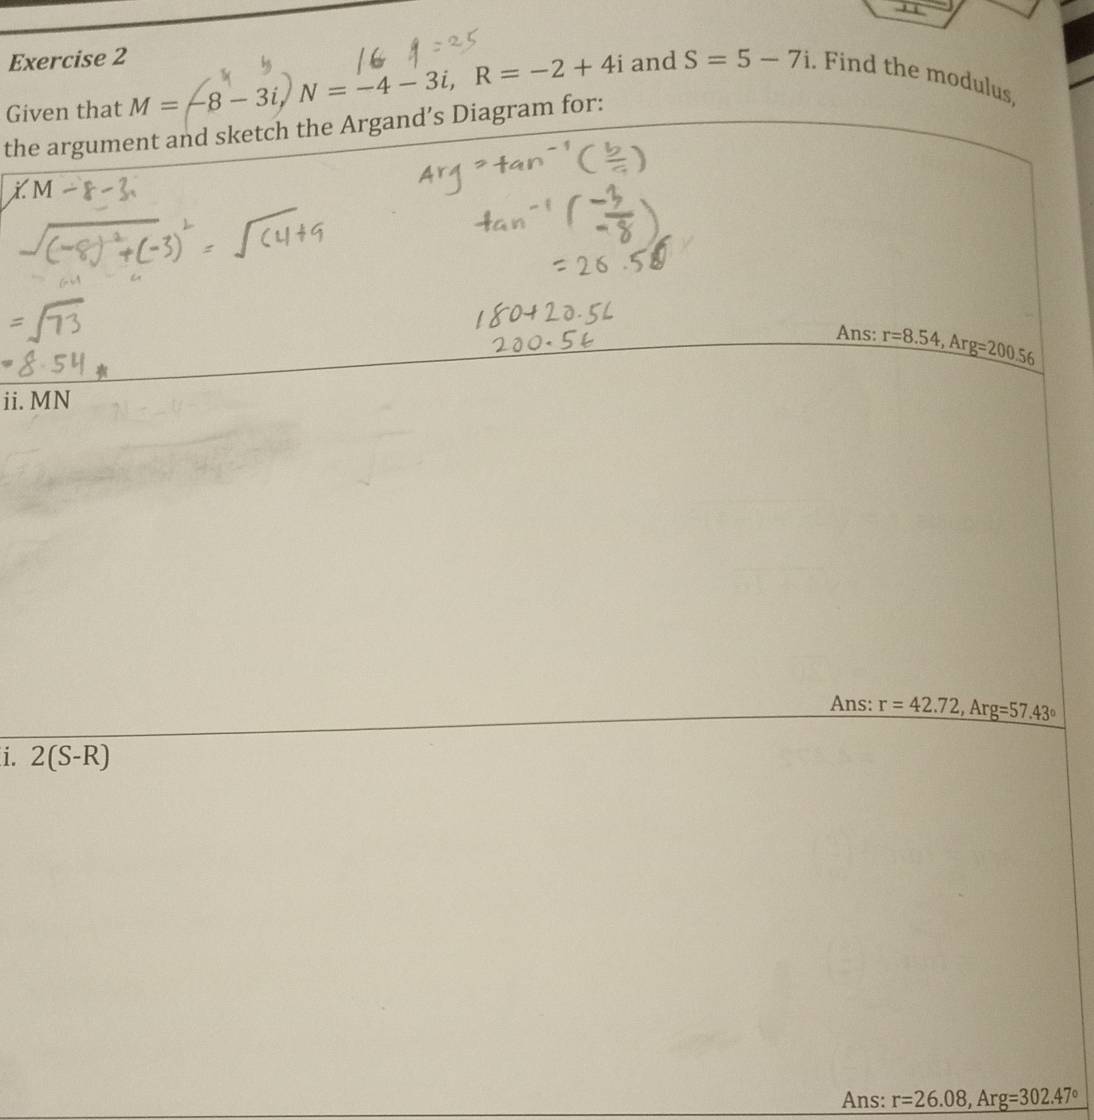 Exercise 2
16 9 = 25
a b
Given that M = (-8 - 3i,) N = -4 - 3i, R = -2 + 4i and S = 5 - 7i. Find the modulus,
the argument and sketch the Argand's Diagram for:
i. M -8-3i
√(-8)² + (-3)² = √64+9
= √73
= 8.54
Arg = tan⁻¹ (b/a)
tan⁻¹ (-3/-8)
= 20.56
180+20.56
200.56
Ans: r=8.54, Arg=200.56
ii. MN
Ans: r = 42.72, Arg=57.43°
i. 2(S-R)
Ans: r=26.08, Arg=302.47°